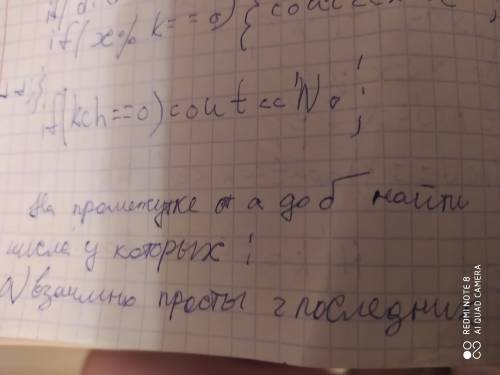 if(x%k==0){cout<<x;
if(kch==0)cout<<"No";
На промежутке от а до б найти
числа у которых:
а) взаимно просты 2 последни
REDMI NOTE 8
AI QUAD CAMERA